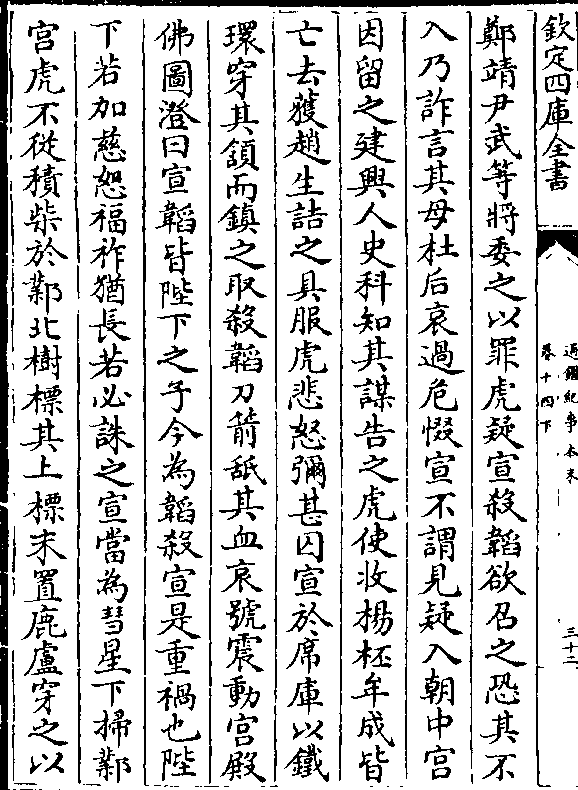 欽定四庫全書
通鑑紀事本末
卷十四下
三十二
鄭靖尹武等將委之以罪虎疑宣殺韜欲召之恐其不
入乃詐言其母杜后哀過危惙宣不謂見疑入朝中宫
因留之建興人史科知其謀告之虎使收楊柸牟成皆
亡去獲趙生詰之具服虎悲怒彌甚囚宣於席庫以鐵
環穿其頷而鎮之取殺韜刀箭舐其血哀號震動宫殿
佛圖澄曰宣韜皆陛下之子今為韜殺宣是重禍也陛
下若加慈恕福祚猶長若必誅之宣當為彗星下掃鄴
宫虎不從積柴於鄴北樹標其上標末置鹿盧穿之以